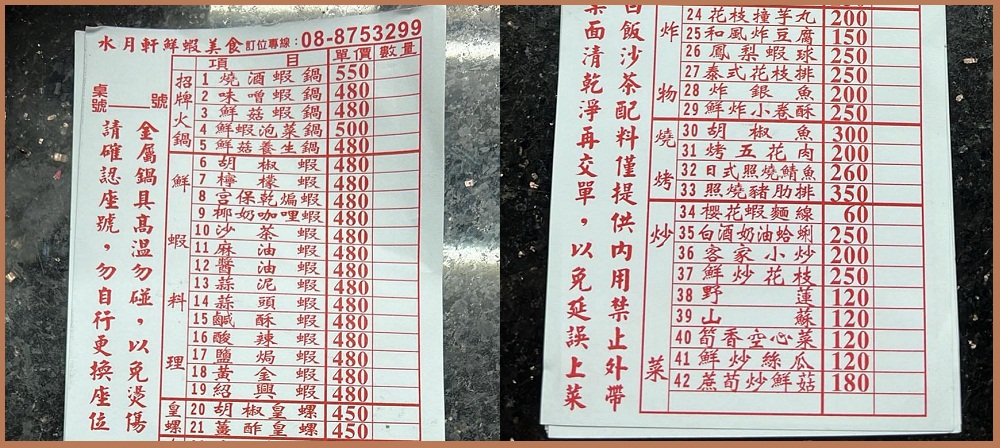 水月軒鮮蝦美食訂位專線:08-8753299
項目 單價 數量
招牌火鍋
1 燒酒蝦鍋 550
2 味噌蝦鍋 480
3 鮮菇蝦鍋 480
4 鮮蝦泡菜鍋 500
5 鮮菇養生鍋 480
鮮蝦料理
6 胡椒蝦 480
7 檸檬蝦 480
8 宮保乾煸蝦 480
9 椰奶咖哩蝦 480
10 沙茶蝦 480
11 麻油蝦 480
12 醬油蝦 480
13 蒜泥蝦 480
14 蒜頭蝦 480
15 鹹酥蝦 480
16 酸辣蝦 480
17 鹽焗蝦 480
18 黃金蝦 480
19 紹興蝦 480
皇螺
20 胡椒皇螺 450
21 薑酢皇螺 450
桌號____號
金屬鍋具高溫勿碰,以免燙傷
請確認座號,勿自行更換座位
炸物
24 花枝撞羊丸 200
25 和風炸豆腐 150
26 鳳梨蝦球 250
27 泰式花枝排 250
28 炸銀魚 200
29 鮮炸小卷酥 250
燒烤
30 胡椒魚 300
31 烤五花肉 200
32 日式照燒鯖魚 260
33 照燒豬肋排 350
炒菜
34 櫻花蝦麵線 60
35 白酒奶油蛤蜊 250
36 客家小炒 200
37 鮮炒花枝 250
38 野蓮 120
39 山蘇 120
40 筍香空心菜 120
41 鮮炒絲瓜 120
42 蔗筍炒鮮菇 180
白飯沙茶配料僅提供內用禁止外帶
桌面清乾淨再交單,以免延誤上菜